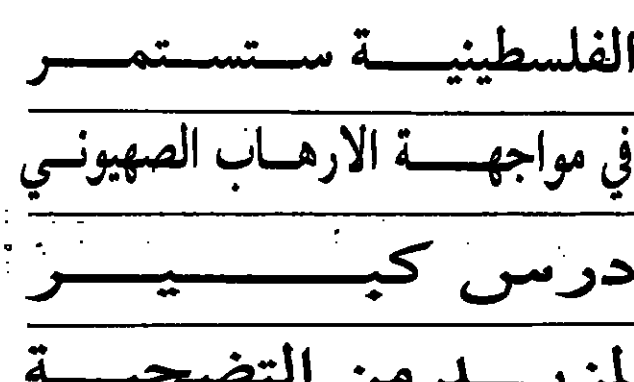 الفلسطينية ستستمر
في مواجهة الارهاب الصهيوني
درس كبير
لمزيد من التضحية